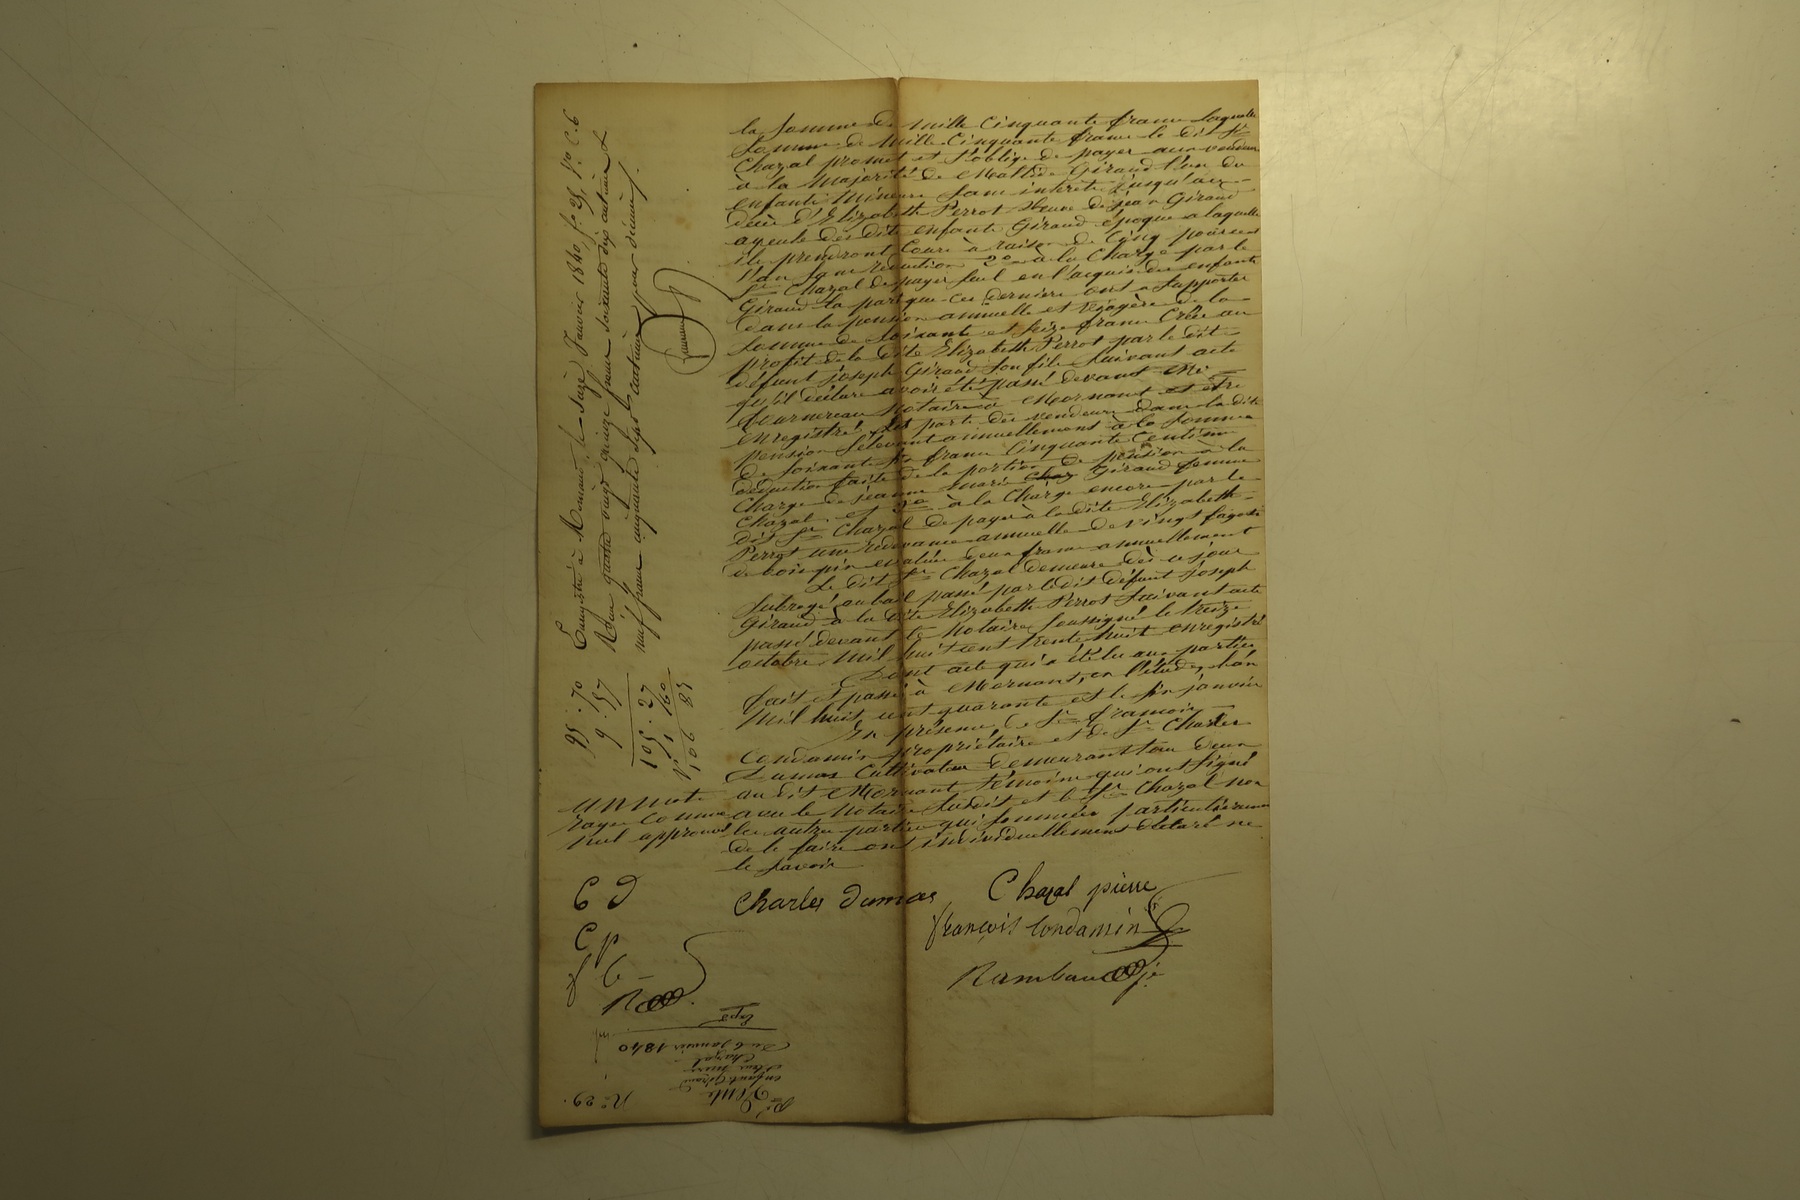 la somme de mille Cinquante francs laquelle
somme de mille Cinquante francs le dit Sr
Chazal promet et s'oblige de payer aux vendeurs
à la Majorité de Mathide Giraud l'un des
enfants Mineurs sans intérêts jusqu'au
décès d'Elizabeth Perrot Veuve de jean Giraud
ayeule des dits enfants Giraud époque a laquelle
ils prendront Cours à raison de Cinq pour cent
l'an sans réduction 2o à la Charge par le
Sr Chazal de payer seul en l'acquis des enfants
Giraud la part que ces derniers ont a supporter
dans la pension annuelle et viagère de la
somme de soixante et seize francs Créé au
profit de la dite Elizabeth Perrot par le dit
défunt joseph Giraud son fils suivant acte
qu'il déclare avoir été passé devant Me
Fournereau Notaire à Mornant et être
enregistré, les parts des vendeurs dans la dite
pension s'élevant annuellement à la somme
de soixante six francs Cinquante Centimes
déduction faite de la portion de pension à la
Charge de jeanne Marie Chaz Giraud femme
Chazal, et 3o à la Charge encore par le
dit Sr Chazal de payer à la dite Elizabeth
Perrot une redevance annuelle de vingt fagots
de bois pin évalués deux francs annuellement
Le dit Sr Chazal demeure dès ce jour
subrogé au bail passé par le dit défunt joseph
Giraud à la dite Elizabeth Perrot suivant acte
passé devant le Notaire soussigné le treize
octobre Mil huit cent trente huit enregistré
Dont acte qui a été lu aux parties
fait et passé à Mornant, en l'étude, l'an
Mil huit cent quarante et le six janvier
En présence de Sr françois
Condamin propriétaire et de Sr Charles
Dumas Cultivateur demeurant tous deux
au dit Mornant témoins qui ont signé
avec le Notaire susdit et le Sr Chazal non
les autres parties qui sommées particulièrement
de le faire ont individuellement déclaré ne
le savoir
Charles Dumas
Chazal pierre
françois Condamin
Rambaud
un mot
rayé Comme
nul approuvé
C D
C p
f C
R
Enregistré à Mornant le seize Janvier 1840, fo 25, Vo C. 6
Reçu quatre vingt quinze francs soixante dix centimes &
neuf francs cinquante sept centimes pour décime
95 . 70
9 . 57
105 . 27
1 60
106 87
No 29.
Vente
enfants Giraud
Chazal
Du 6 Janvier 1840
Expé